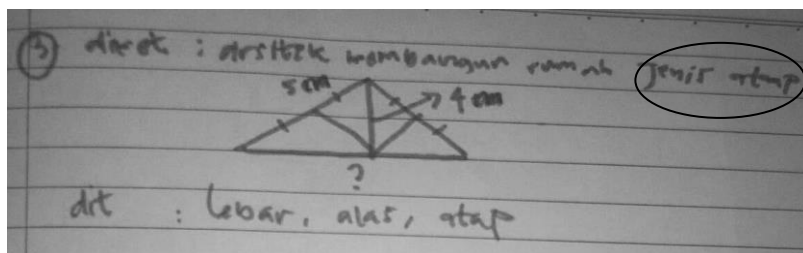 ③ diket : arsitek membangun rumah jenis atap
5 cm
4 cm
?
dit : lebar, alas, atap